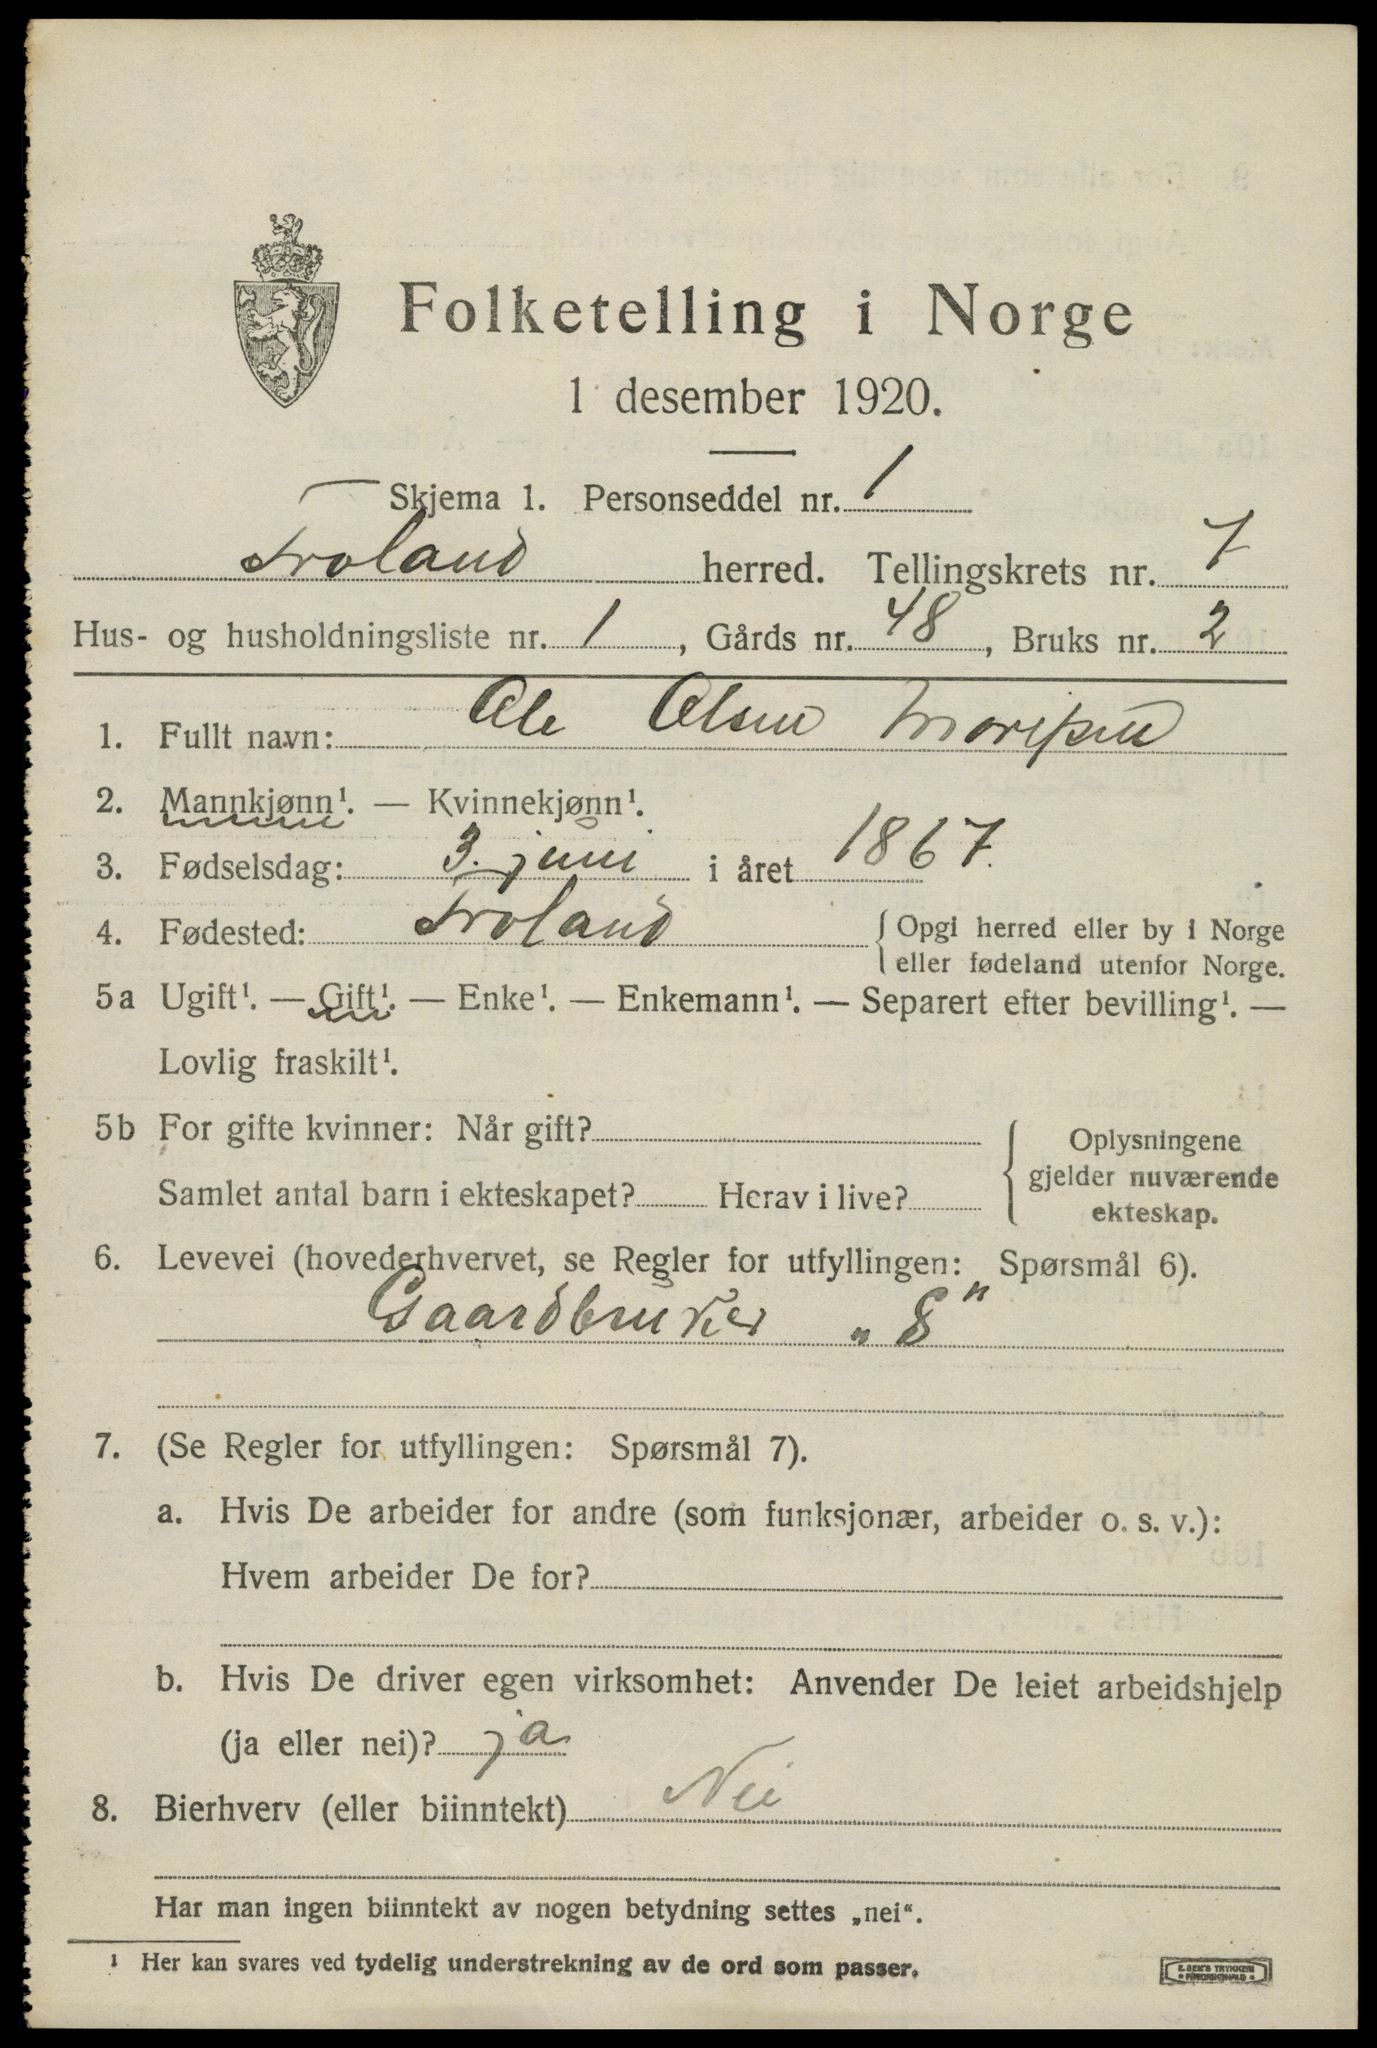 Folketelling i Norge
1 desember 1920.
Skjema 1. Personseddel nr. 1
Froland herred. Tellingskrets nr. 7
Hus- og husholdningsliste nr. 1, Gårds nr. 48, Bruks nr. 2
1. Fullt navn: Ole Olsen
2. Mannkjønn¹. — Kvinnekjønn¹.
3. Fødselsdag: 3. juni i året 1867.
4. Fødested: Froland { Opgi herred eller by i Norge
eller fødeland utenfor Norge.
5a Ugift¹. — Gift¹. — Enke¹. — Enkemann¹. — Separert efter bevilling¹. —
Lovlig fraskilt¹.
5b For gifte kvinner: Når gift?
Samlet antal barn i ekteskapet? Herav i live?
{ Oplysningene
gjelder nuværende
ekteskap.
6. Levevei (hovederhvervet, se Regler for utfyllingen: Spørsmål 6).
Gaardbruker „S"
7. (Se Regler for utfyllingen: Spørsmål 7).
a. Hvis De arbeider for andre (som funksjonær, arbeider o. s. v.):
Hvem arbeider De for?
b. Hvis De driver egen virksomhet: Anvender De leiet arbeidshjelp
(ja eller nei)? ja
8. Bierhverv (eller biinntekt) Nei
Har man ingen biinntekt av nogen betydning settes „nei“.
¹ Her kan svares ved tydelig understrekning av de ord som passer.